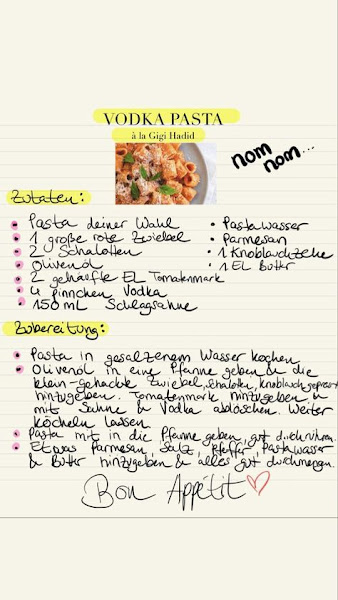 VODKA PASTA
à la Gigi Hadid
nom nom...
Zutaten:
• Pasta deiner Wahl
• 1 große rote Zwiebel
• 2 Schalotten
• Olivenöl
• 2 gehäufte EL Tomatenmark
• 4 Pinnchen Vodka
• 150 mL Schlagsahne
• Pastawasser
• Parmesan
• 1 Knoblauchzehe
• 1 EL Butter
Zubereitung:
• Pasta in gesalzenem Wasser kochen
• Olivenöl in eine Pfanne geben & die
klein-gehackte Zwiebel, Schalotten, Knoblauch gepresst
hinzugeben. Tomatenmark hinzugeben u
mit Sahne & Vodka ablöschen. Weiter
köcheln lassen
• Pasta mit in die Pfanne geben, gut durchrühren.
• Etwas Parmesan, Salz, Pfeffer, Pastawasser
& Butter hinzugeben & alles gut durchmengen.
Bon Appétit